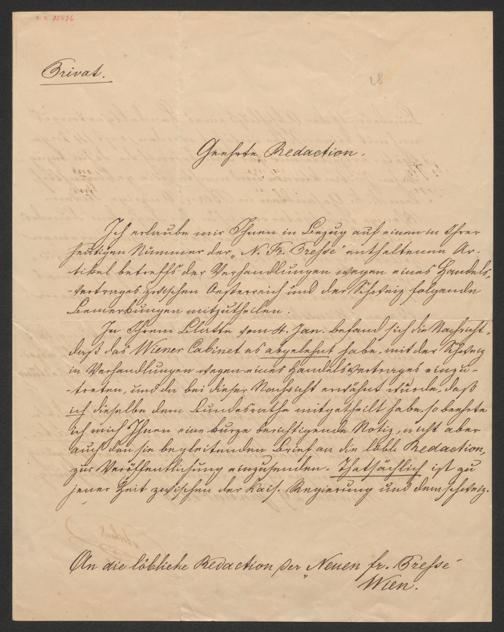 Privat.
28
Geehrte Redaction.
Ich erlaube mir Ihnen in Bezug auf einen in Ihrer
heutigen Nummer der „N. Fr. Presse“ enthaltenen Ar-
tikel betreffs der Verhandlungen wegen eines Handels-
vertrages zwischen Oesterreich und der Schweiz folgende
Bemerkungen mitzutheilen.
In Ihrem Blatte vom 4. Jan. befand sich die Nachricht,
daß das Wiener Cabinet es abgelehnt habe, mit der Schweiz
in Verhandlungen wegen eines Handelsvertrages einzu-
treten, und da bei dieser Nachricht erwähnt wurde, daß
ich dieselbe dem Bundesrathe mitgetheilt habe, so beehrte
ich mich Ihnen eine kurze berichtigende Notiz, nicht aber
auch den sie begleitenden Brief an die löbl. Redaction,
zur Veröffentlichung einzusenden. Thatsächlich ist zu
jener Zeit zwischen der kais. Regierung und dem schweiz.
An die löbliche Redaction der „Neuen fr. Presse“
Wien.